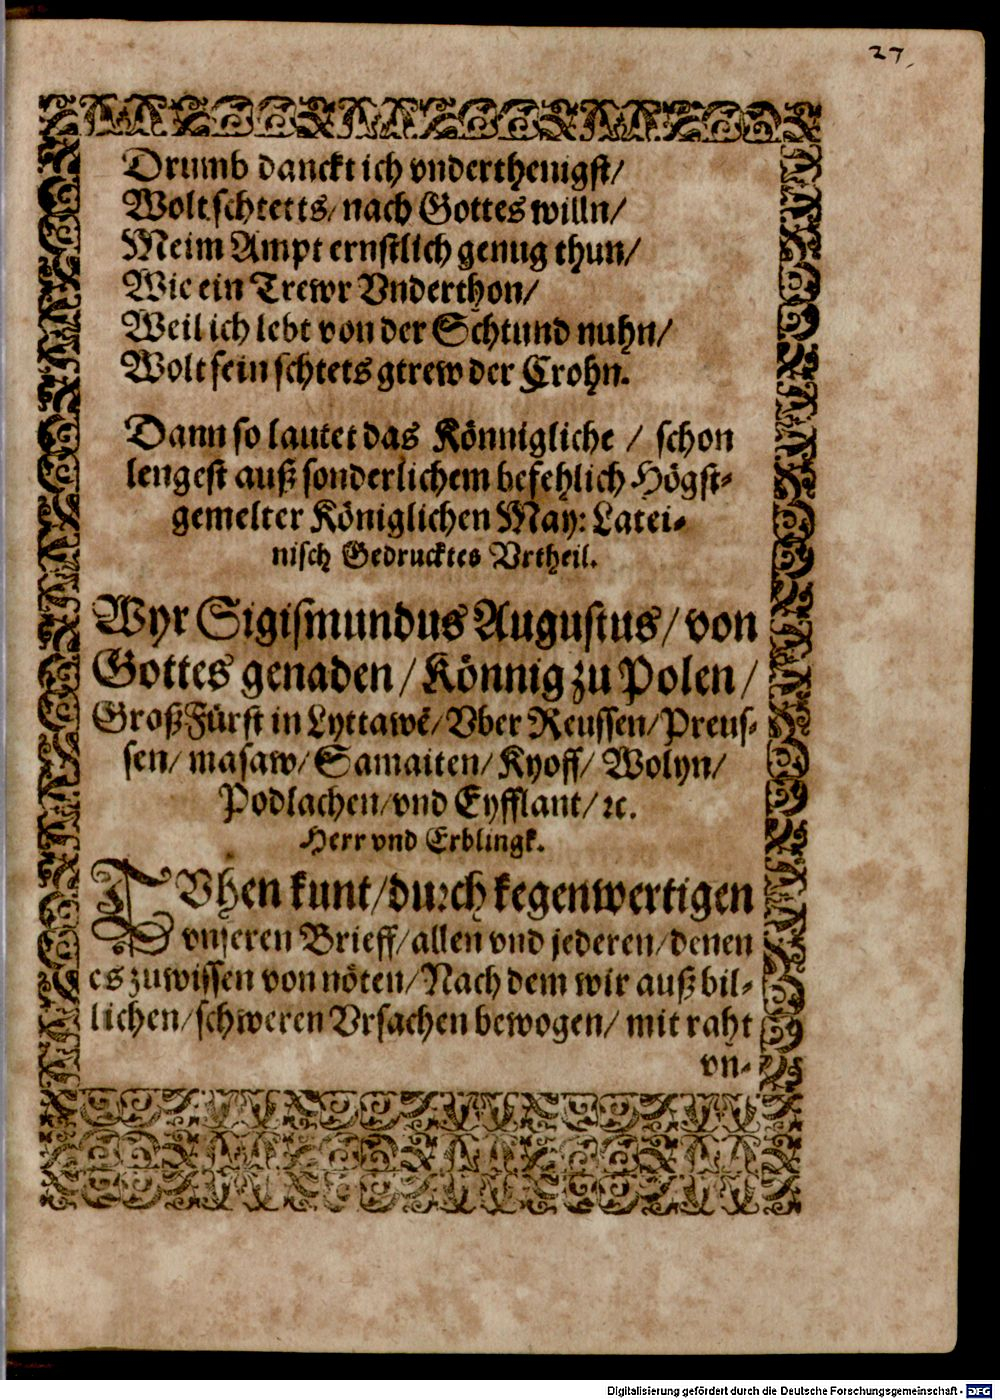 27.
Drumb danckt ich vnderthenigst/
Wolt schtetts/ nach Gottes willn/
Meim Ampt ernstlich genug thun/
Wie ein Trewr Vnderthon/
Weil ich lebt von der Schtund nuhn/
Wolt sein schtets gtrew der Crohn.
Dann so lautet das Könnigliche / schon
lengest auß sonderlichem befehlich Högst-
gemelter Königlichen May: Latei-
nisch Gedrucktes Vrtheil.
Wyr Sigismundus Augustus/ von
Gottes genaden/ Könnig zu Polen/
Groß Fürst in Lyttawē/ Vber Reussen/ Preus-
sen/ masaw/ Samaiten/ Kyoff/ Wolyn/
Podlachen/ vnd Eyfflant/ ꝛc.
Herr vnd Erblingk.
TVhen kunt/ durch kegenwertigen
vnseren Brieff/ allen vnd jederen/ denen
es zuwissen von nöten/ Nach dem wir auß bil-
lichen/ schweren Vrsachen bewogen/ mit raht
vn-
Digitalisierung gefördert durch die Deutsche Forschungsgemeinschaft - DFG